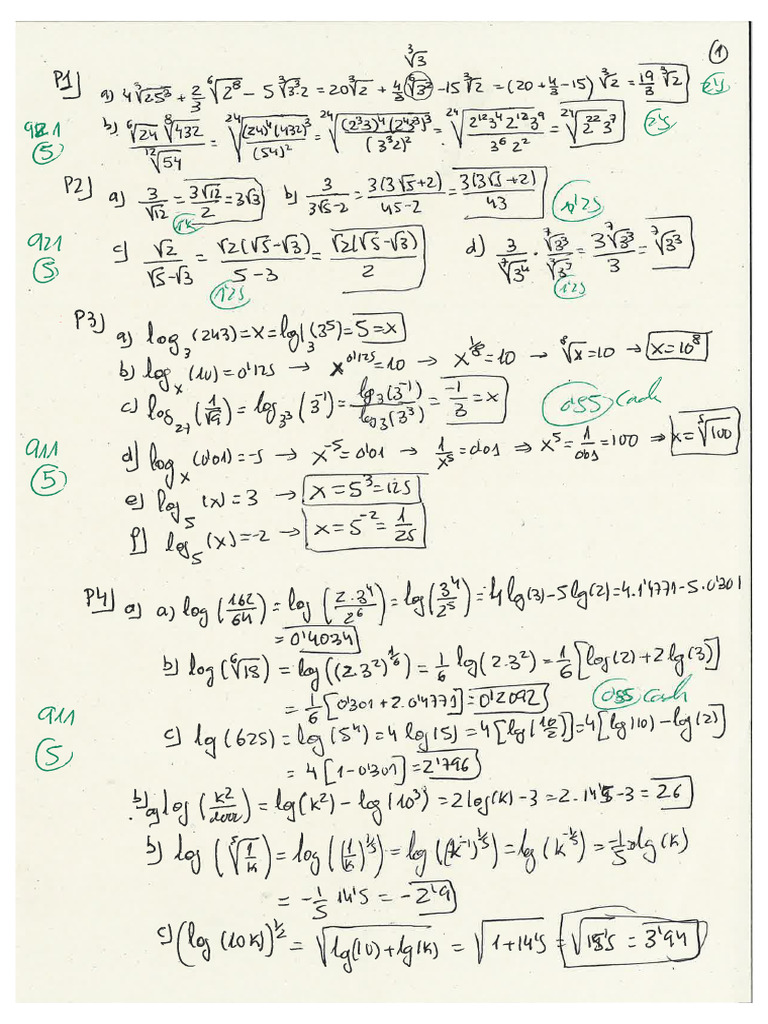 ∛3
①
P1) a) 4∛25³ + 2/3 ⁶√2⁸ − 5∛3³·2 = 20∛2 + 4/3 ⁶√3² − 15∛2 = (20 + 4/3 − 15) ∛2 = 19/3 ∛2
b) ⁶√24 ⁸√432 / ¹²√54 = ²⁴√((24)⁴(432)³/(54)²) = ²⁴√((2³3)⁴(2⁴3³)³/(3³2)²) = ²⁴√(2¹²3⁴2¹²3⁹/3⁶2²) = ²⁴√(2²²3⁷)
5
P2) a) 3/√12 = 3√12/2 = 3√3 b) 3/(3√5−2) = 3(3√5+2)/(45−2) = 3(3√5+2)/43 1'25
921
5
c) √2/(√5−√3) = √2(√5−√3)/(5−3) = √2(√5−√3)/2 d) 3/⁷√3⁴ · ⁷√3³/⁷√3³ = 3⁷√3³/3 = ⁷√3³
1'25 1'25
P3) a) log₃(243) = x = log₃(3⁵) = 5 = x
b) logₓ(10) = 0'125 → x^0'125 = 10 → x^1/8 = 10 → ⁸√x = 10 → x = 10⁸
c) log₂₇(1/√9) = log₃³(3⁻¹) = log₃(3⁻¹)/log₃(3³) = −1/3 = x 0'85 cada
911
5
d) logₓ(0'01) = −5 → x⁻⁵ = 0'01 → 1/x⁵ = 0'01 ⇒ x⁵ = 1/0'01 = 100 ⇒ x = ⁵√100
e) log₅(x) = 3 → x = 5³ = 125
f) log₅(x) = −2 → x = 5⁻² = 1/25
P4) a) a) log(162/64) = log(2·3⁴/2⁶) = log(3⁴/2⁵) = 4 log(3) − 5 log(2) = 4·1'4771 − 5·0'301
= 0'4034
b) log(⁶√18) = log((2·3²)^1/6) = 1/6 log(2·3²) = 1/6 [log(2) + 2 log(3)]
= 1/6 [0'301 + 2·0'4771] = 0'2092 0'85 cada
911
5
c) log(625) = log(5⁴) = 4 log(5) = 4 [log(10/2)] = 4 [log(10) − log(2)]
= 4 [1 − 0'301] = 2'796
b) a) log(k²/1000) = log(k²) − log(10³) = 2 log(k) − 3 = 2·14'5 − 3 = 26
b) log(⁵√(1/k)) = log((1/k)^1/5) = log((k⁻¹)^1/5) = log(k^−1/5) = −1/5 log(k)
= −1/5 14'5 = −2'9
c) (log(10k))^1/2 = √(log(10) + log(k)) = √(1 + 14'5) = √15'5 = 3'94